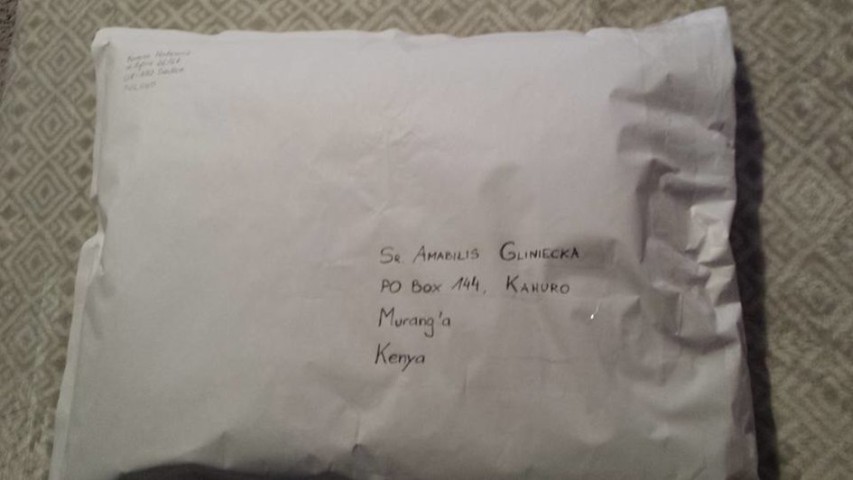 POLAND
Sr. AMABILIS GLINIECKA
PO BOX 144, KAHURO
Murang'a
Kenya